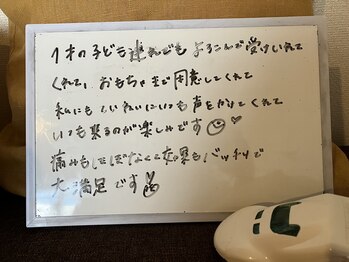 1才の子ども連れでもよろこんで受けいれて
くれて、おもちゃまで用意してくれて
私にもていねいにいつも声をかけてくれて
いつも来るのが楽しみです
痛みもほぼなくて効果もバッチリで
大満足です